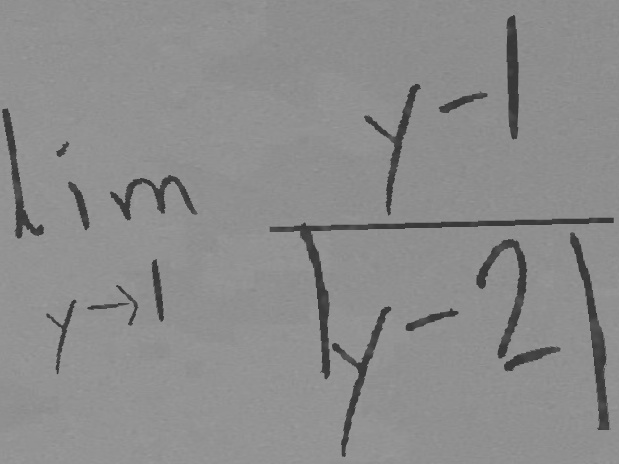 lim y→1 \frac{y-1}{|y-2|}